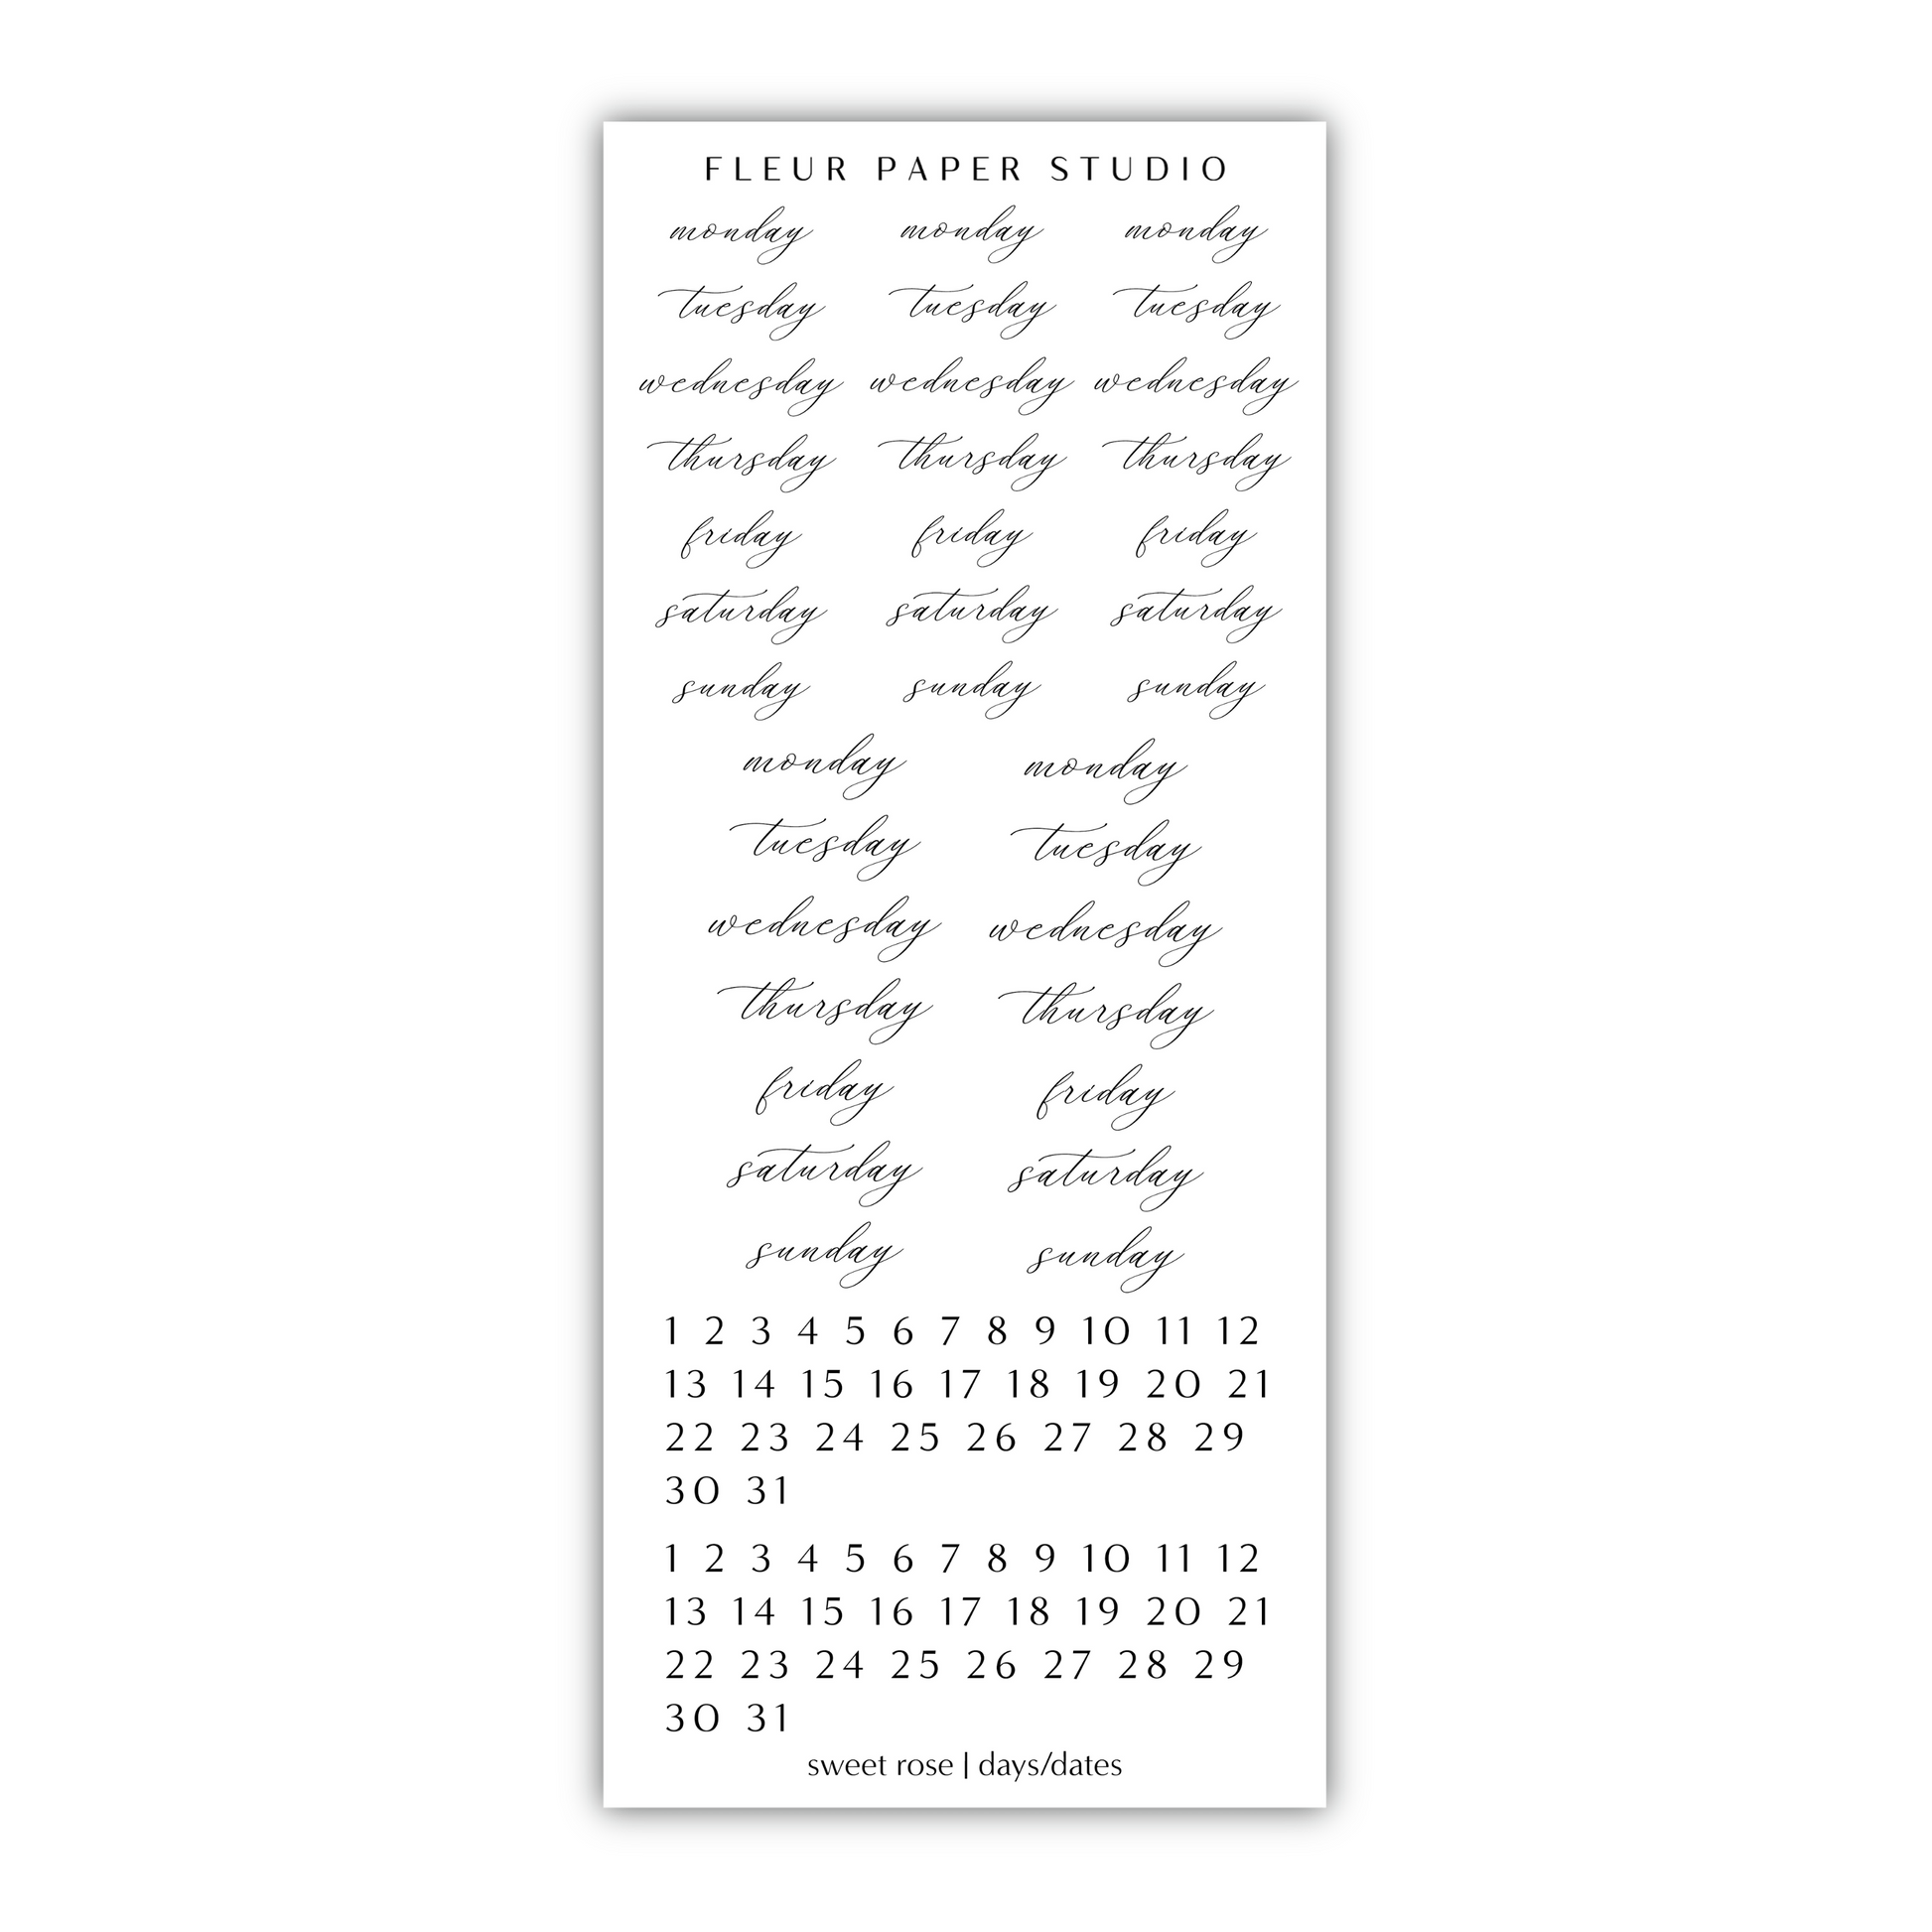 FLEUR PAPER STUDIO
monday monday monday
tuesday tuesday tuesday
wednesday wednesday wednesday
thursday thursday thursday
friday friday friday
saturday saturday saturday
sunday sunday sunday
monday monday
tuesday tuesday
wednesday wednesday
thursday thursday
friday friday
saturday saturday
sunday sunday
1 2 3 4 5 6 7 8 9 10 11 12
13 14 15 16 17 18 19 20 21
22 23 24 25 26 27 28 29
30 31
1 2 3 4 5 6 7 8 9 10 11 12
13 14 15 16 17 18 19 20 21
22 23 24 25 26 27 28 29
30 31
sweet rose | days/dates